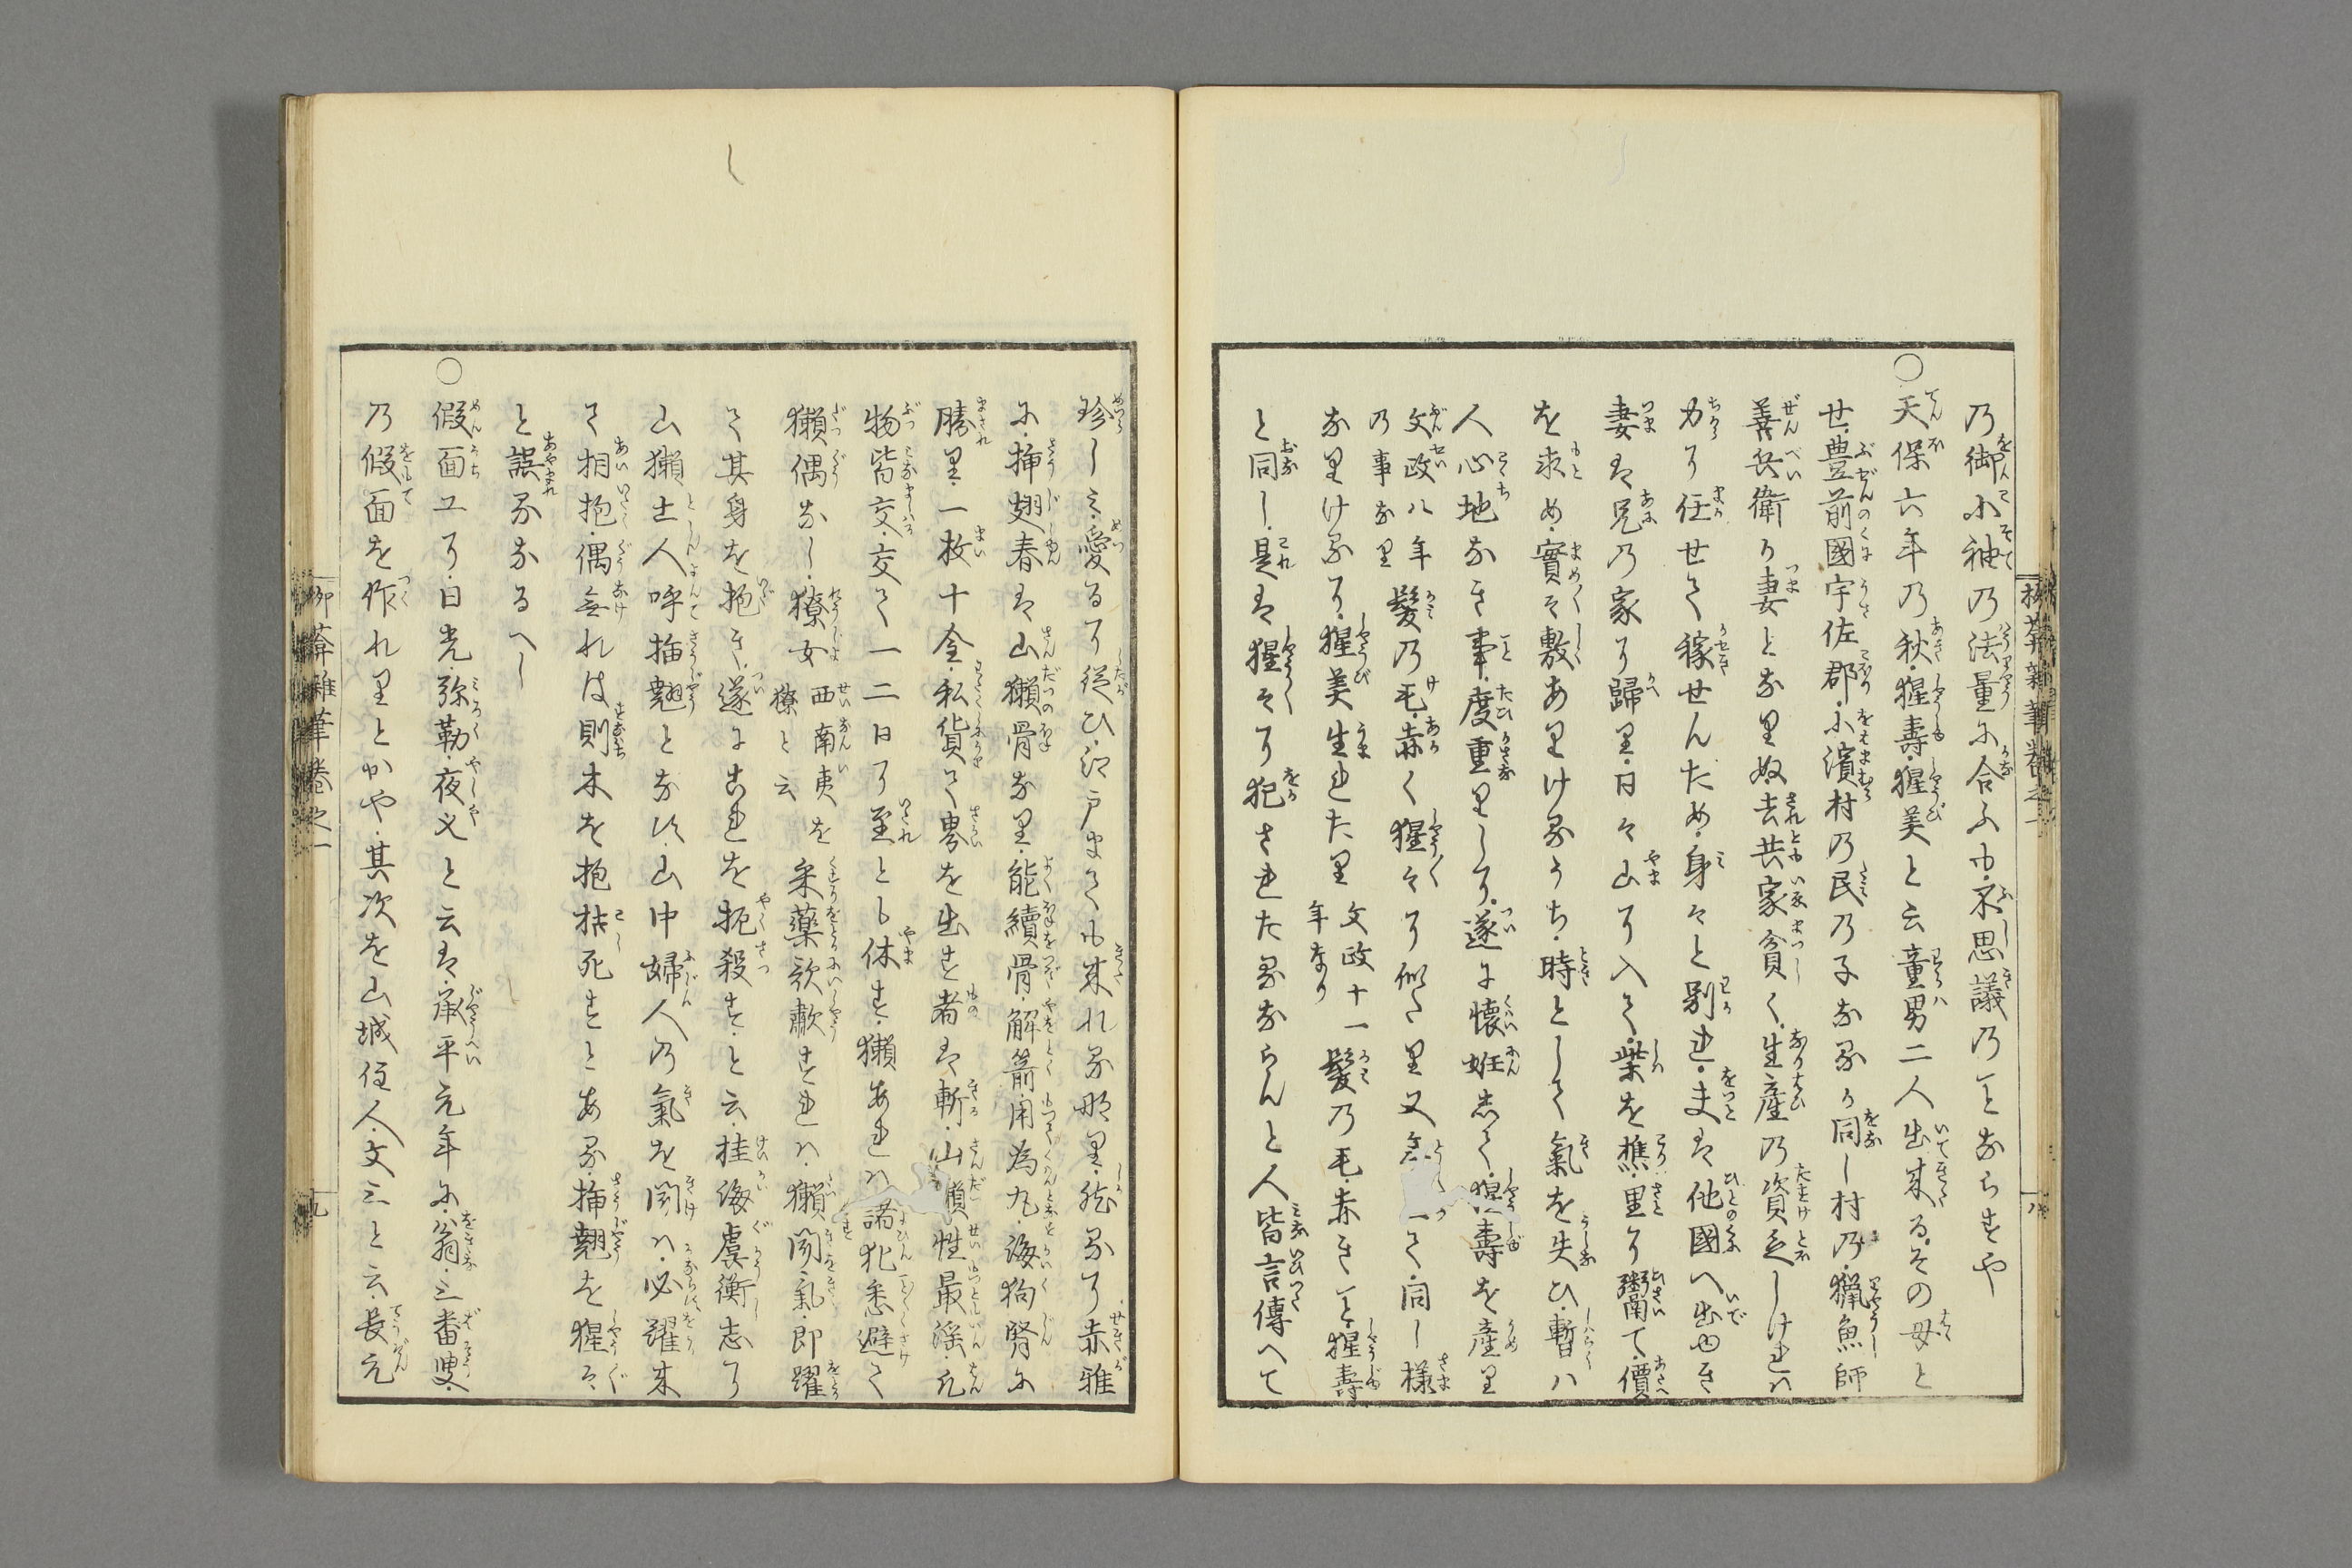 乃御小袖乃法量に合ふも不思議乃ことならすや
○天保六年乃秋猩壽猩美と云童男二人出来るその母と
せ豊前國宇佐郡小濱村乃民乃子なるか同し村乃猟魚師
善兵衛か妻となりぬ去共家貧く生産乃資乏しけれハ
力に任せて稼せんため身々と別れ夫は他國へ出ゆき
妻は兄乃家に歸り日々山に入て柴を樵里に鬻て價
を求め實々敷ありけるうち時として氣を失ひ暫ハ
人心地なき事度重りしに遂に懐妊志て猩壽を産り
文政八年乃事なり髪乃毛赤く猩々に似たり又
て同し様
なりけるに猩美生れたり文政十一年なり髪乃毛赤きこと猩壽
と同し是は猩々に犯されたるならんと人皆言傳へて
珍しミ愛るに從ひ江戸まても来れるなり然るに赤雅
に挿翅春は山獺骨なり能續骨解箭用為丸海狗腎に
勝り一枚十金私貨て界を出す者は斬山獺性最淫凡
物皆交交て一二日に至とも休す獺あれハ諸犯悉避て
獺偶なし獠女西南夷を獠と云采藥歌歗すれハ獺聞氣即躍
て其身を抱き遂にこれを扼殺すと云桂海虞衡志に
山獺土人呼插翹となす山中婦人乃氣を聞ハ必躍来
て相抱偶無れは則木を抱枯死すとある挿翹を猩々
と誤るなるへし
○假面工に日光弥勒夜叉と云は承平元年に翁三番叟
乃假面を作れりとかや其次を山城住人文三と云長元
柳葊雜筆卷之一
九